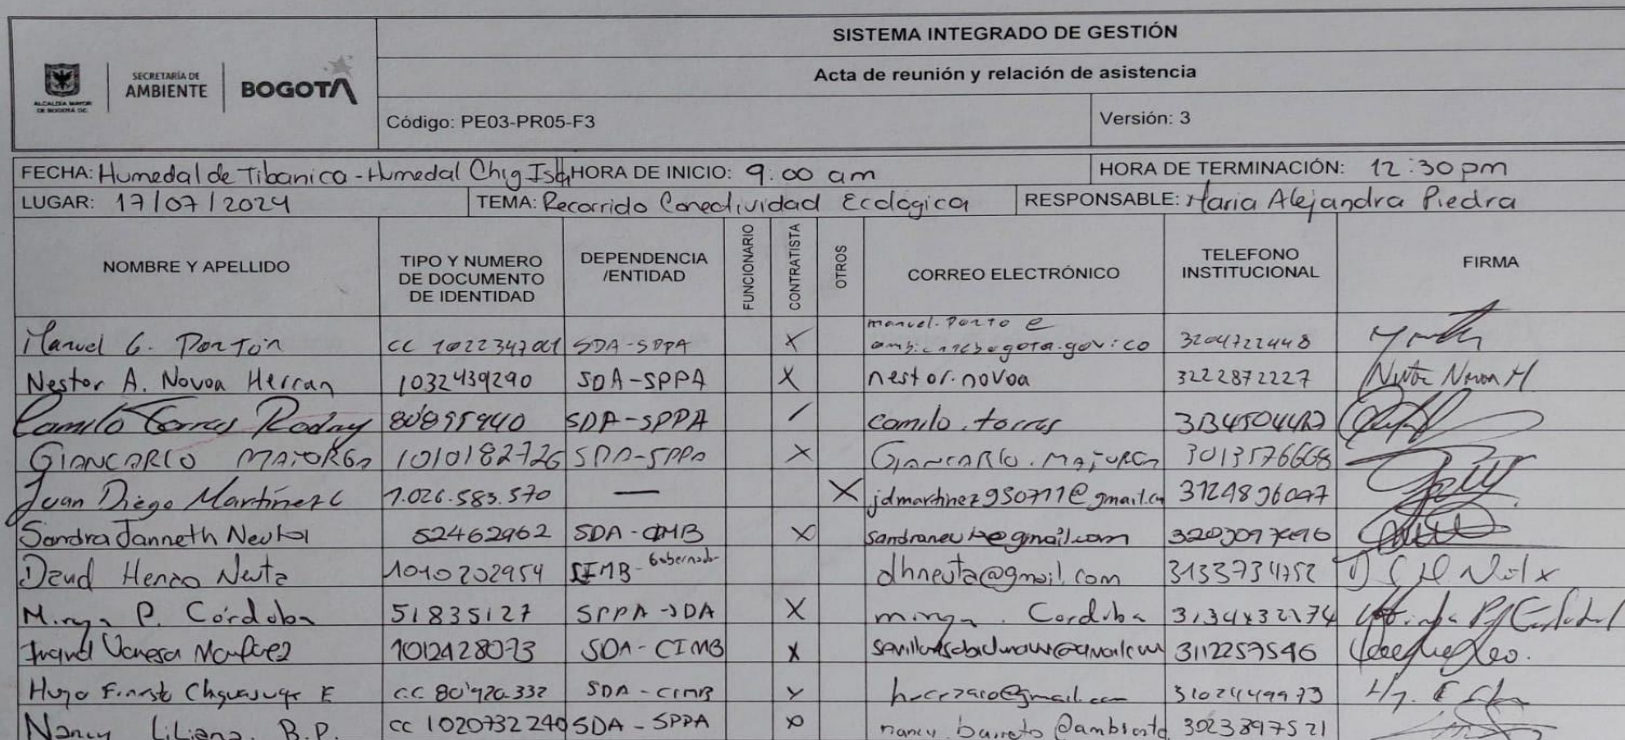 SISTEMA INTEGRADO DE GESTIÓN
ALCALDÍA MAYOR
DE BOGOTÁ DC.
SECRETARÍA DE
AMBIENTE
BOGOTÁ
Acta de reunión y relación de asistencia
Código: PE03-PR05-F3 Versión: 3
FECHA: Humedal de Tibanica - Humedal Chig Isla HORA DE INICIO: 9:00 am HORA DE TERMINACIÓN: 12:30 pm
LUGAR: 17/07/2024 TEMA: Recorrido Conectividad Ecologica RESPONSABLE: Maria Alejandra Piedra
NOMBRE Y APELLIDO
TIPO Y NUMERO
DE DOCUMENTO
DE IDENTIDAD
DEPENDENCIA
/ENTIDAD
FUNCIONARIO
CONTRATISTA
OTROS
CORREO ELECTRÓNICO
TELEFONO
INSTITUCIONAL
FIRMA
Manuel G. Portón CC 1022347001 SDA-SPPA X manuel.porto e
ambiente bogota.gov.co 3204722448
Nestor A. Novoa Herran 1032439290 SDA-SPPA X nestor.novoa 3222872227 Nestor Novoa H
Camilo Torres Rodny 80895940 SDA-SPPA / camilo.torres
GIANCARLO MAYORGA 1010182726 SDA-SPPA X GIANCARLO.MAYORGA 3013576668
Juan Diego Martínez C 1.026.583.570 — X jdmartinez950711@gmail.co 3124896047
Sandra Janneth 52462962 SDA-CIMB X @gmail.com
Henao Neuta 1010202954 Gobernador dhneuta@gmail.com 3133734752
P. Córdoba 51835127 SPPA-SDA X Cordoba 3134432174
Vanesa 1012428073 SDA-CIMB X 3112257546
Hugo E CC 80'920.332 SDA-CIMB X @gmail.com 3102449973
Nancy Liliana. B.P. CC 1020732240 SDA-SPPA X nancy.barreto @ambiente 3023897521